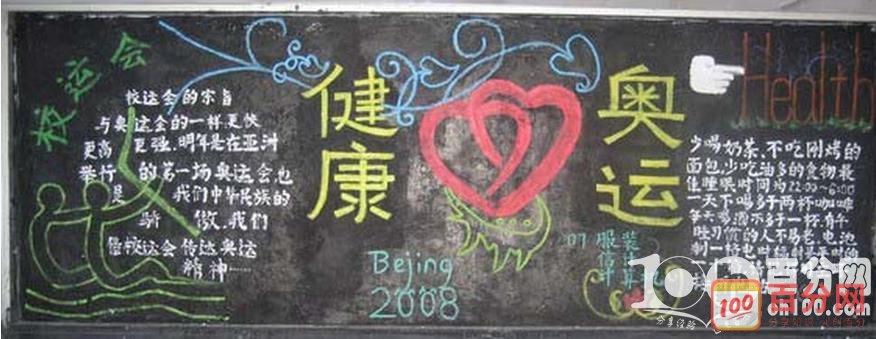 校运会
校运会的宗旨
与奥运会的一样更快
更高 更强.明年是在亚洲
举行 的第一场奥运会也
是 我们中华民族的
骄 傲.我们
借校运会传达奥运
精神……
健康
奥运
Bejing
2008
07服装
信计
Health
少喝奶茶、不吃刚烤的
面包.少吃油多的食物.最
佳睡眠时间为22:00~6:00
一天不喝多于两杯咖啡
每天喝酒不多于一杯.有午
睡习惯的人不易老.电池
百分网
百分网
100
cn100.com